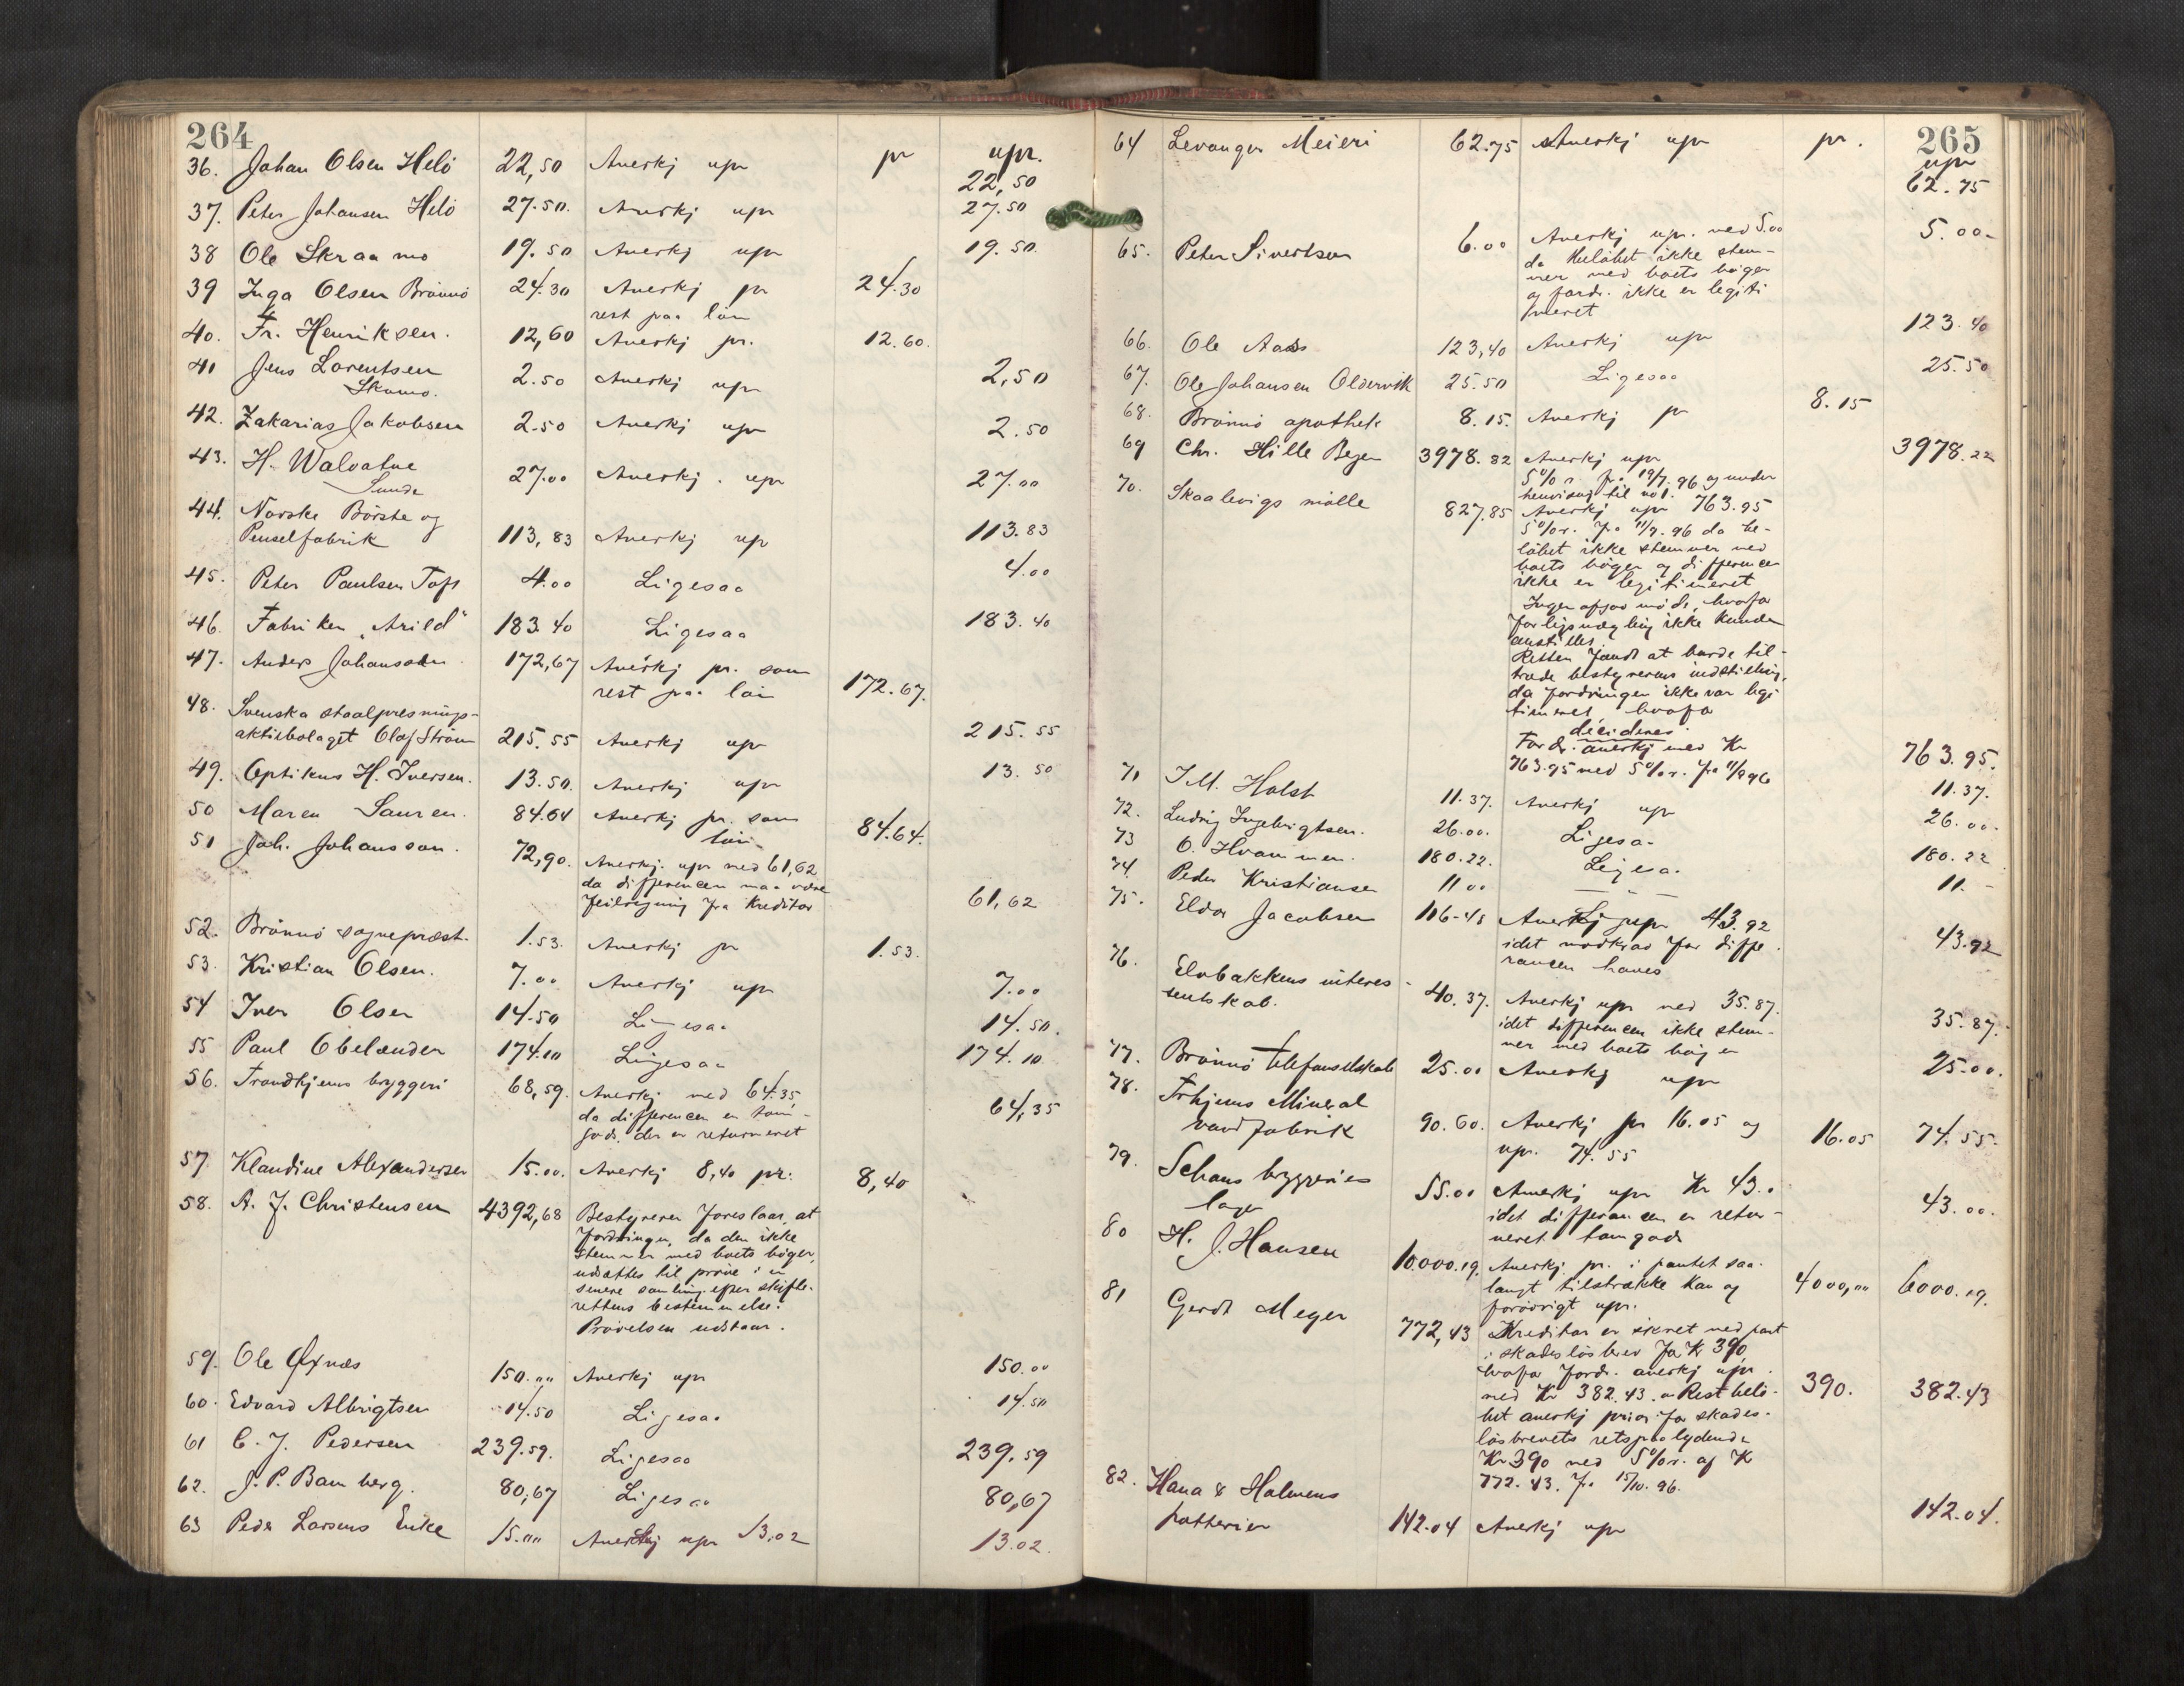 264
pr upr.
36. Johan Olsen Helö 22,50 Anerkj upr 22,50
37. Peter Johansen Helö 27.50. Anerkj upr 27.50
38 Ole Skraamo 19.50 Anerkj upr 19.50
39 Inga Olsen Brönnö 24.30 Anerkj pr 24.30
rest paa lön
40. Fr. Henriksen. 12,60 Anerkj pr. 12.60.
41 Jens Lorentsen 2.50 Anerkj upr 2,50
Skomo.
42. Zakarias Jakobsen 2.50 Anerkj upr 2.50
43. H. Walvatne
Sunde 27.00 Anerkj. upr 27.00
44. Norske Börste og
Penselfabrik 113,83 Anerkj up 113.83
45. Peter Paulsen Toft 4.00 Ligesaa 4.00
46. Fabriken „Arild" 183.40 Ligesaa 183.40
47. Anders Johanson. 172,67 Anerkj pr. som
rest paa lön 172.67.
48. Svenska staalpresnings-
aktiebolaget Olof Ström 215.55 Anerkj upr 215.55
49. Optikus H. Iversen. 13.50. Anerkj upr 13.50
50 Maren Sauren. 84.64 Anerkj pr. som
lön 84.64.
51 Joh. Johansson. 72,90. Anerkj. upr med 61,62
da differencen maa være
feilregning fra Kreditor 61,62
52. Brönnö sognepræst. 1.53. Anerkj pr 1.53.
53. Kristian Olsen. 7.00 Anerkj upr 7.00
54 Iver Olsen 14.50 Ligesaa 14.50.
55 Paul Obelænder 174.10 Ligesaa 174.10
56. Trondhjems bryggeri 68,59. Anerkj med 64.35,
da differencen er tom-
gods, der er returneret 64,35
57 Klaudine Alexandersen 15.00. Anerkj 8,40 pr. 8,40
58. A. J. Christensen 4392,68 Bestyreren foreslaar, at
fordringen, da den ikke
stemmer med boets böger,
udsættes til pröve i en
senere samling efter skifte-
rettens bestemmelse.
Prövelsen udstaar.
59. Ole Øxnæs 150.00 Anerkj upr 150.00
60. Edvard Albrigtsen 14.50 Ligesaa 14.50
61 C. J. Pedersen 239.59. Ligesaa 239,59
62. J. P. Bamberg. 80,67 Ligesaa 80,67
63 Peder Larsens Enke 15.00 Anerkj upr 13,02 13.02.
265
pr. upr
64 Levanger Meieri 62.75 Anerkj upr 62.75
65. Peter Sivertsen 6.00 Anerkj upr. med 5.00 5.00-
da beløbet ikke stem-
mer med boets böger
og fordr. ikke er legiti
meret
66. Ole Aas 123,40 Anerkj upr 123.40
67. Ole Johansen Oldervik 25.50 Ligesaa 25.50
68. Brönnö apothek 8.15. Anerkj pr 8.15
69 Chr. Hille Beyer 3978.82 Anerkj upr 3978.22
5% r. fra 19/7.96 og under
henvisng til no 1.
70. Skaalevigs mölle 827.85 Anerkj upr 763.95
5% r. fra 11/9.96 da be-
löbet ikke stemmer med
boets böger og differencen
ikke er legitimeret
Ingen afgav möde, hvorfor
forligsmægling ikke kunde
anstilles.
Retten fandt at burde til-
træde bestyrerens indstilling,
da fordringen ikke var legi
timeret hvorfor
decideres:
Fordr. anerkj med Kr
763.95 med 5% r. fra 11/9 96 763.95.
71 I. M. Holst 11.37. Anerkj upr 11.37.
72. Ludvig Ingebrigtsen. 26.00. Ligesaa 26.00.
73 O. Hvammen. 180.22. Ligesaa 180.22
74. Peder Kristiansen 11 00 — — 11.-
75. Eldor Jacobsen 106-45 Anerkj upr 43.92
idet modkrav for diffe-
rancen haves 43.92
76. Elvbakkens interes-
sentskab. 40.37. Anerkj upr med 35.87.
idet differencen ikke stem-
mer med boets böger 35.87.
77. Brönnö telefonselskab 25.00 Anerkj upr 25.00.
78. Trhjems Mineral
vandfabrik 90.60. Anerkj pr 16.05 og
upr. 74.55 16.05 74.55.
79. Schous bryggeries
lager 55.00 Anerkj upr Kr 43.0
idet differancen er retur-
neret tomgods 43.00.
80 H. J. Hansen 10.000.19. Anerkj. pr. i pantet saa-
langt tilstrække kan og
forövrigt upr. 4000,00 6000.19.
81 Gerdt Meyer 772,43 Kreditor er sikret ved pant
i skadeslösbrev for Kr 390,
hvorfor fordr. anerkj upr.
med Kr 382.43. Restbelö-
bet anerkj prior. for skades-
lösbrevets retspaalydende
Kr 390 med 5% r. af Kr
772.43. fra 15/10.96. 390. 382.43
82. Hana & Halmens
potterier 142.04 Anerkj upr 142.04.